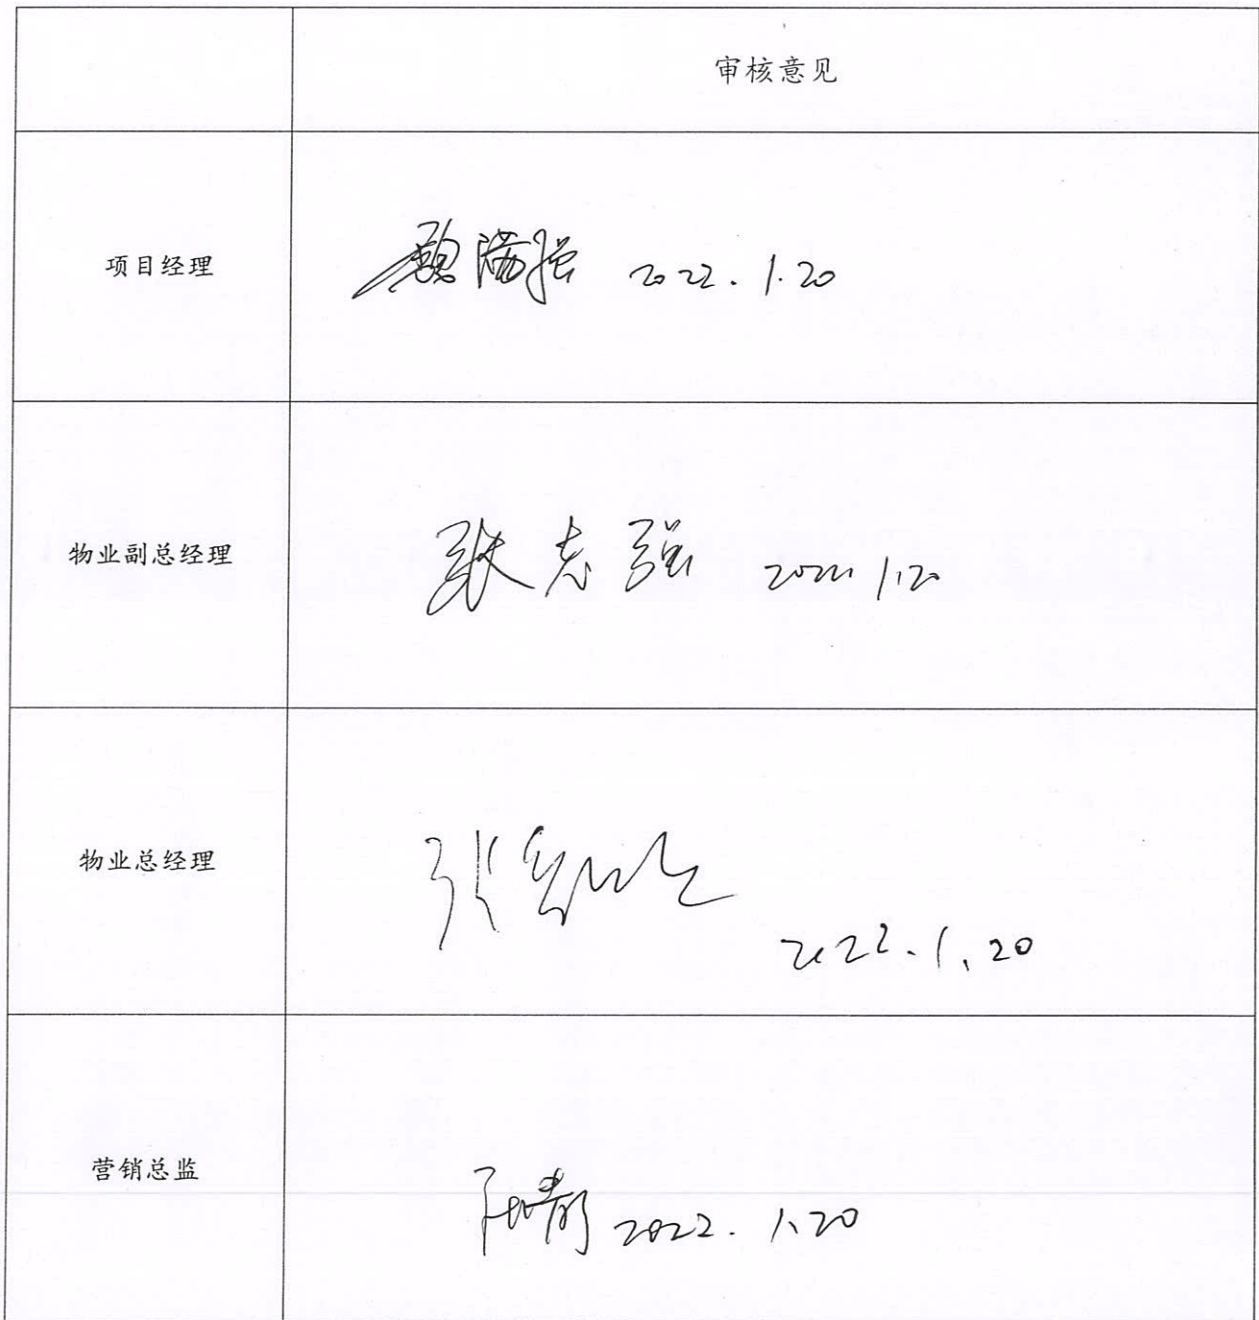 审核意见
项目经理
顾满强 2022.1.20
物业副总经理
张志强 2022.1.20
物业总经理
张 2022.1.20
营销总监
2022.1.20